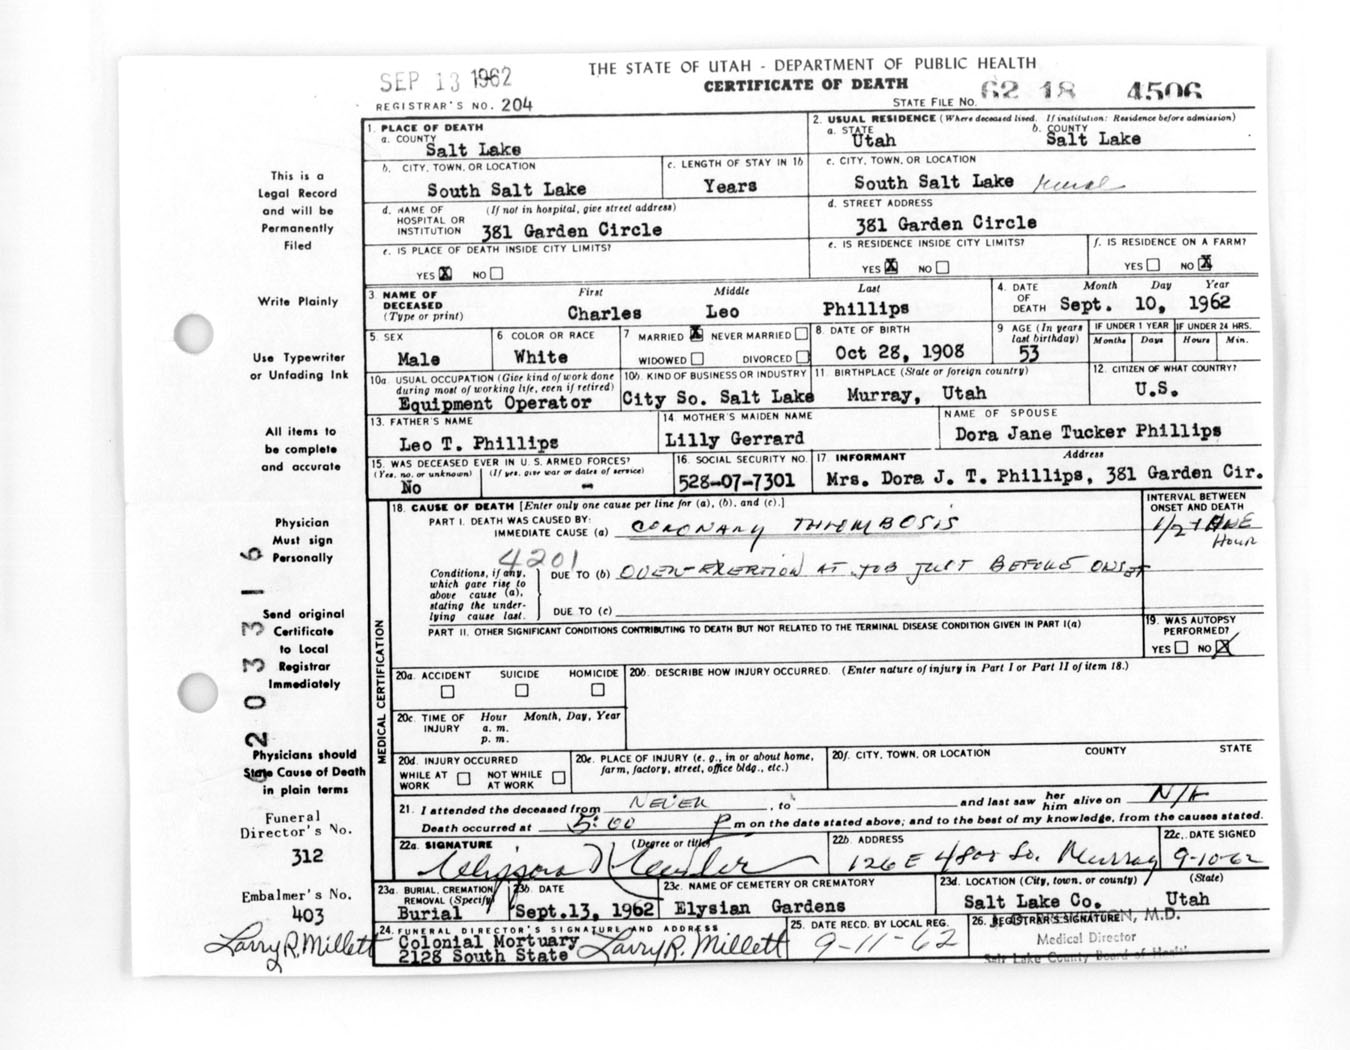 SEP 13 1962
THE STATE OF UTAH - DEPARTMENT OF PUBLIC HEALTH
CERTIFICATE OF DEATH
REGISTRAR'S NO. 204
STATE FILE NO. 62 18 4506
This is a
Legal Record
and will be
Permanently
Filed
Write Plainly
Use Typewriter
or Unfading Ink
All items to
be complete
and accurate
Physician
Must sign
Personally
Send original
Certificate
to Local
Registrar
Immediately
Physicians should
State Cause of Death
in plain terms
Funeral
Director's No.
312
Embalmer's No.
403
Larry R. Millett
203316
1. PLACE OF DEATH
a. COUNTY
Salt Lake
2. USUAL RESIDENCE (Where deceased lived. If institution: Residence before admission)
a. STATE b. COUNTY
Utah Salt Lake
b. CITY, TOWN, OR LOCATION
South Salt Lake
c. LENGTH OF STAY IN 1b
Years
c. CITY, TOWN, OR LOCATION
South Salt Lake rural
d. NAME OF (If not in hospital, give street address)
HOSPITAL OR
INSTITUTION 381 Garden Circle
d. STREET ADDRESS
381 Garden Circle
e. IS PLACE OF DEATH INSIDE CITY LIMITS?
YES X NO
e. IS RESIDENCE INSIDE CITY LIMITS?
YES X NO
f. IS RESIDENCE ON A FARM?
YES NO X
3. NAME OF DECEASED (Type or print)
First Middle Last
Charles Leo Phillips
4. DATE OF DEATH Month Day Year
Sept. 10, 1962
5. SEX
Male
6 COLOR OR RACE
White
7 MARRIED X NEVER MARRIED
WIDOWED DIVORCED
8. DATE OF BIRTH
Oct 28, 1908
9 AGE (In years last birthday)
53
IF UNDER 1 YEAR
Months Days
IF UNDER 24 HRS.
Hours Min.
10a. USUAL OCCUPATION (Give kind of work done
during most of working life, even if retired)
Equipment Operator
10b. KIND OF BUSINESS OR INDUSTRY
City So. Salt Lake
11. BIRTHPLACE (State or foreign country)
Murray, Utah
12. CITIZEN OF WHAT COUNTRY?
U.S.
13. FATHER'S NAME
Leo T. Phillips
14 MOTHER'S MAIDEN NAME
Lilly Gerrard
NAME OF SPOUSE
Dora Jane Tucker Phillips
15. WAS DECEASED EVER IN U.S. ARMED FORCES?
(Yes, no, or unknown) (If yes, give war or dates of service)
No -
16. SOCIAL SECURITY NO.
528-07-7301
17 INFORMANT Address
Mrs. Dora J. T. Phillips, 381 Garden Cir.
MEDICAL CERTIFICATION
18. CAUSE OF DEATH [Enter only one cause per line for (a), (b), and (c).]
PART I. DEATH WAS CAUSED BY:
IMMEDIATE CAUSE (a) CORONARY THROMBOSIS
INTERVAL BETWEEN
ONSET AND DEATH
Hour
4201
Conditions, if any,
which gave rise to
above cause (a),
stating the under-
lying cause last.
DUE TO (b) OVER-EXERTION AT JOB JUST BEFORE ONSET
DUE TO (c)
PART II. OTHER SIGNIFICANT CONDITIONS CONTRIBUTING TO DEATH BUT NOT RELATED TO THE TERMINAL DISEASE CONDITION GIVEN IN PART I(a)
19. WAS AUTOPSY
PERFORMED?
YES NO X
20a. ACCIDENT SUICIDE HOMICIDE
20b. DESCRIBE HOW INJURY OCCURRED. (Enter nature of injury in Part I or Part II of item 18.)
20c. TIME OF INJURY Hour Month, Day, Year
a. m.
p. m.
20d. INJURY OCCURRED
WHILE AT WORK NOT WHILE AT WORK
20e. PLACE OF INJURY (e. g., in or about home,
farm, factory, street, office bldg., etc.)
20f. CITY, TOWN, OR LOCATION COUNTY STATE
21. I attended the deceased from NEVER , to and last saw her him alive on N/A
Death occurred at 5:00 P m on the date stated above; and to the best of my knowledge, from the causes stated.
22a. SIGNATURE (Degree or title)
22b. ADDRESS
126 E 4800 So. Murray
22c. DATE SIGNED
9-10-62
23a. BURIAL, CREMATION,
REMOVAL (Specify)
Burial
23b. DATE
Sept. 13, 1962
23c. NAME OF CEMETERY OR CREMATORY
Elysian Gardens
23d. LOCATION (City, town, or county) (State)
Salt Lake Co. Utah
24. FUNERAL DIRECTOR'S SIGNATURE AND ADDRESS
Colonial Mortuary
2128 South State Larry R. Millett
25. DATE RECD. BY LOCAL REG.
9-11-62
26. REGISTRAR'S SIGNATURE
M.D.
Medical Director
Salt Lake County Board of Health